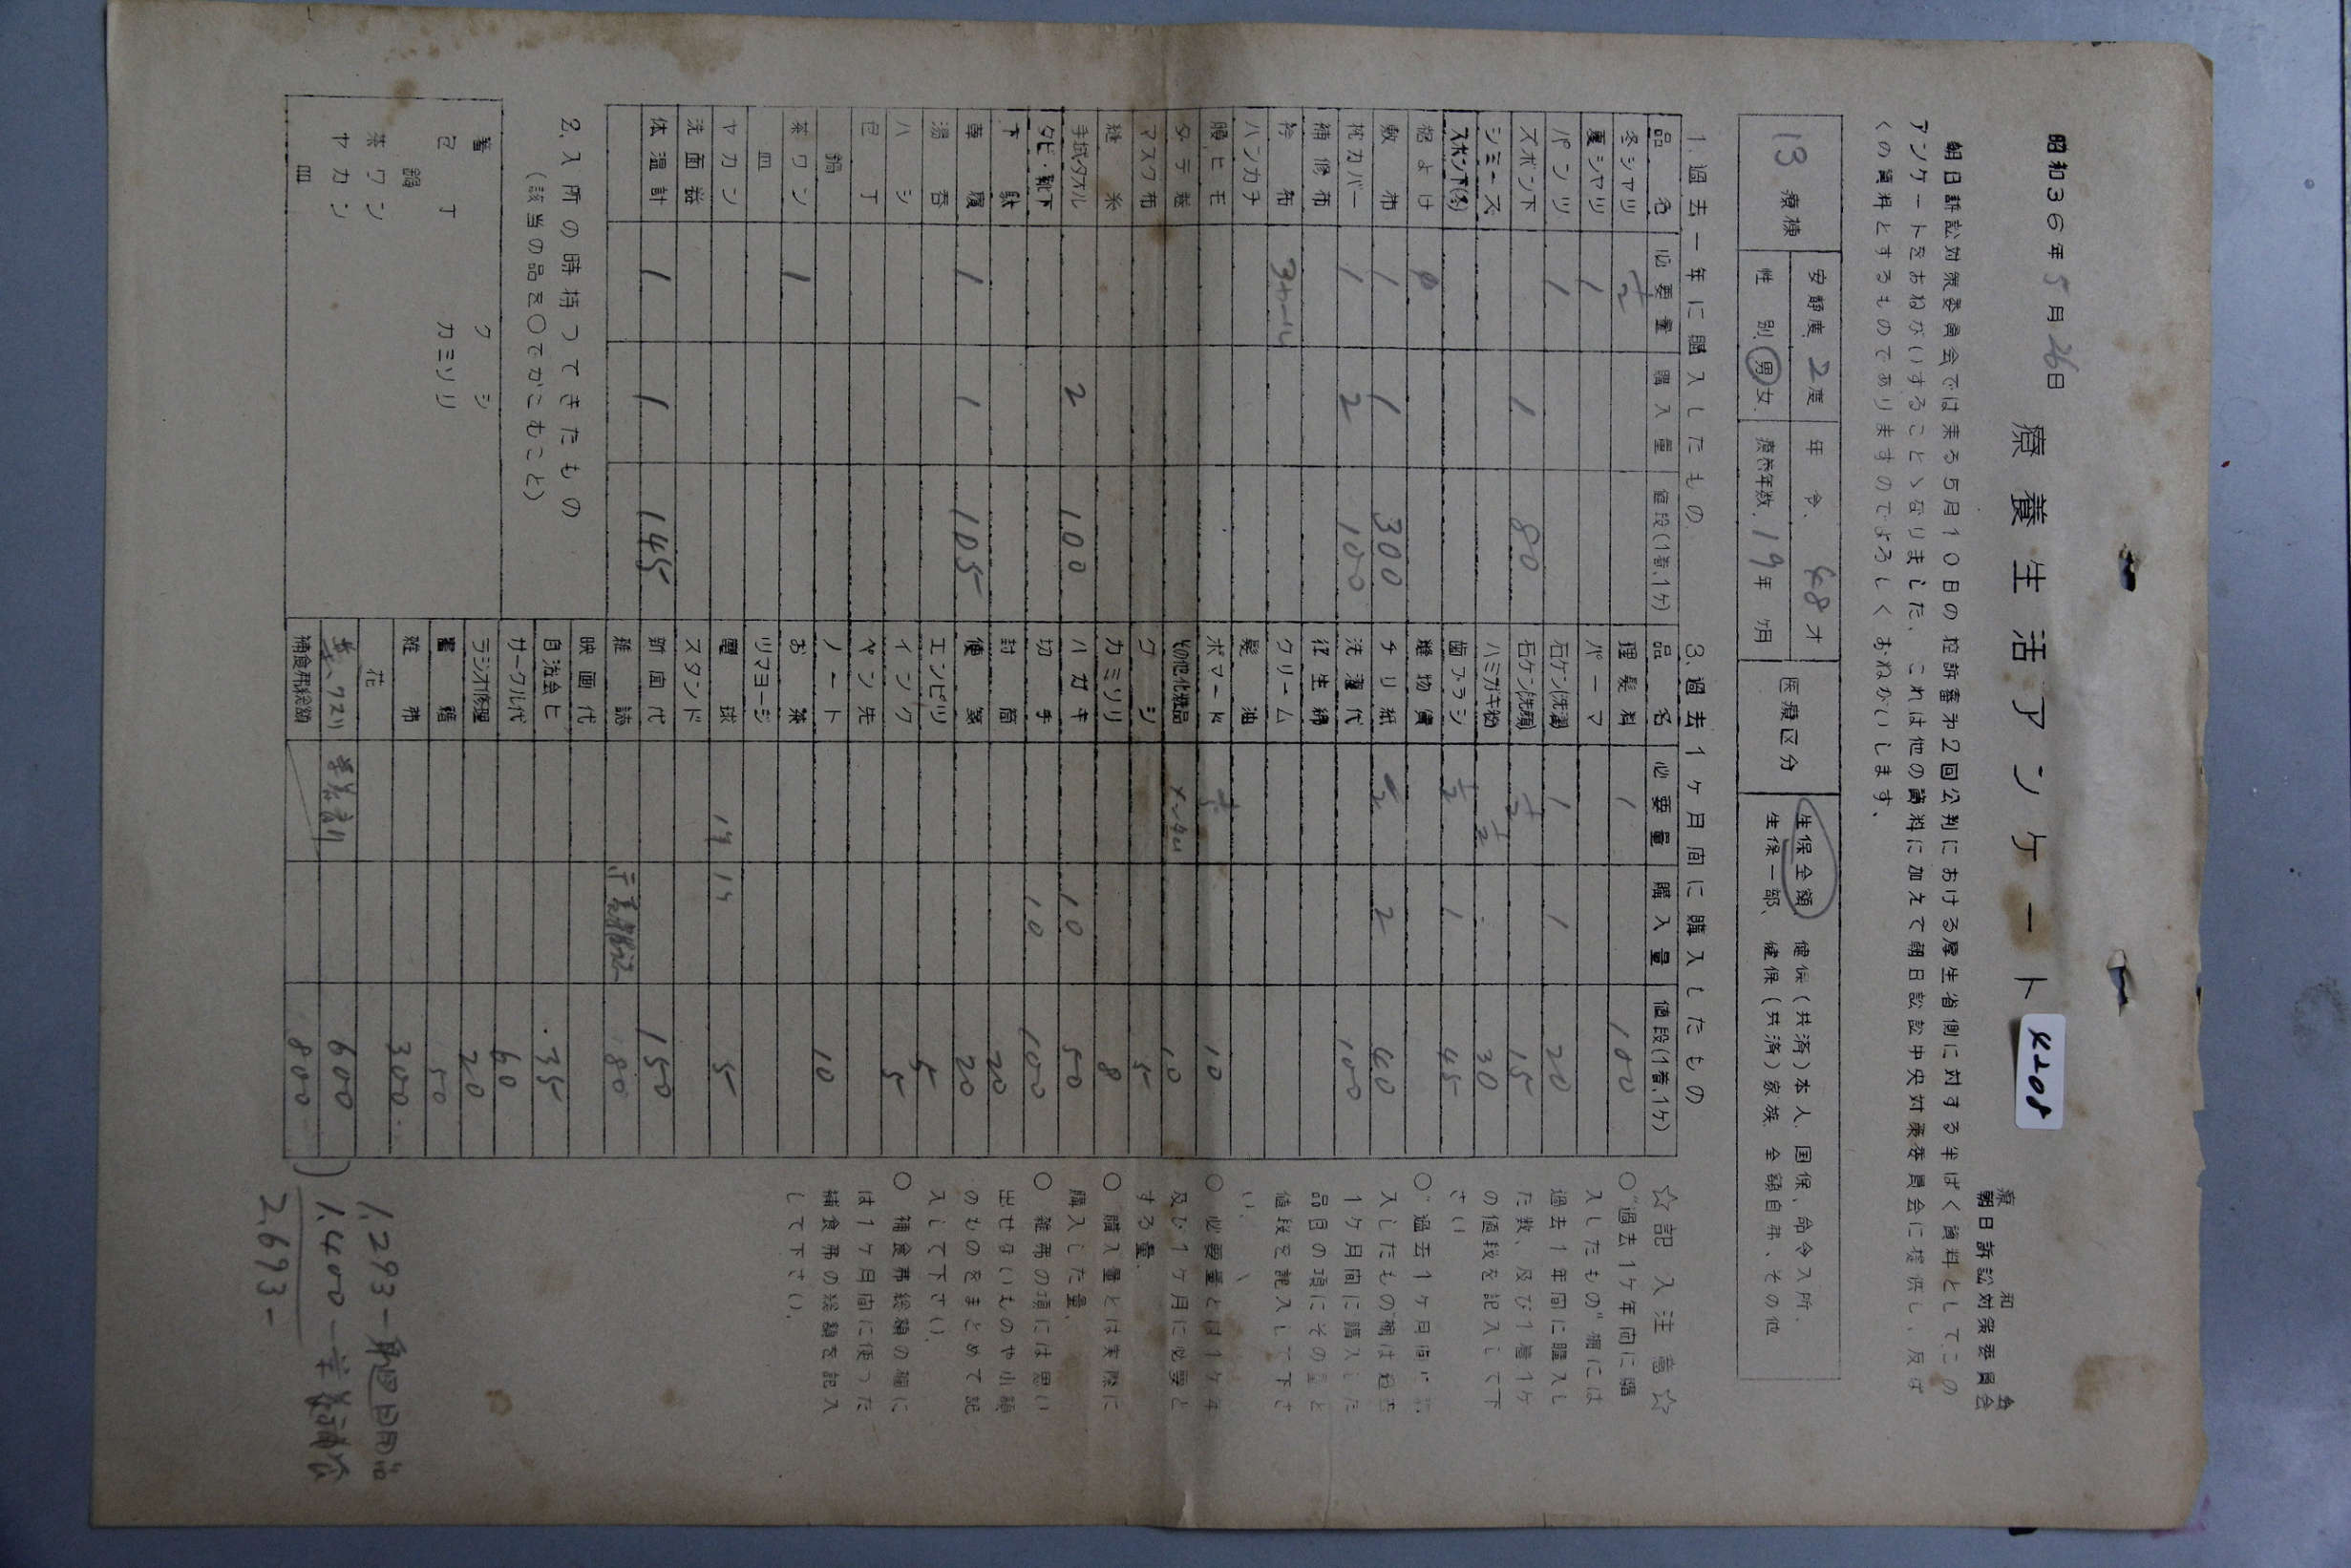 昭和36年5月26日
療養生活アンケート
4208
療 和 会
朝日訴訟対策委員会
朝日訴訟対策委員会では来る5月10日の控訴審才2回公判における厚生省側に対する半ばく資料としてこの
アンケートをおねがいすることゝなりました、これは他の資料に加えて朝日訟訟中央対策委員会に提供し、反ば
くの資料とするものでありますのでよろしくおねがいします、
13 療棟
安静度 2度 年 令、 48才
性 別 男 女 療養年数 19年 ヶ月
医療区分
生保全額 健保(共済)本人、国保、命令入所、
生保一部、健保(共済)家族、全額自弗、その他
1.過去一年に購入したもの
品名 必要量 購入量 値段(1着、1ヶ)
冬シャツ 1/2
夏シャツ 1
パンツ 1
ズボン下 1 80
シミーズ
ズボン下(冬)
枕よけ
敷布 1 1 300
枕カバー 1 2 100
補修布
衿布
ハンカチ
腰ヒモ
タテ巻
マスク布
縫糸
手拭タオル 2 100
タビ・靴下
下駄
草履 1 1 105
湯呑
ハシ
包丁
鍋
茶ワン 1
皿
ヤカン
洗面器
体温計 1 1 145
2.入所の時持つてきたもの
(該当の品を○でかこむこと)
箸 クシ
包丁 カミソリ
鍋
茶ワン
ヤカン
皿
3.過去1ヶ月間に購入したもの
品名 必要量 購入量 値段(1着、1ケ)
理髪料 1 100
パーマ
石ケン(洗濯) 1 1 20
石ケン(洗顔) 1/2 15
ハミガキ粉 1/2 30
歯ブラシ 1/2 1 45
縫物賃
チリ紙 2 2 40
洗濯代 100
衽生綿
クリーム
髪油
ポマード 10
他化粧品 メンタム 10
クシ 5
カミソリ 8
ハガキ 10 50
切手 10 100
封筒 20
便箋 20
エンピツ 5
インク 5
ペン先
ノート 10
お茶
ツマヨージ
電球 1ケ 1ケ 5
スタンド
新聞代 150
雑誌 80
映画代
自治会ヒ 35
サークル代 60
ラジオ修理 20
書籍 50
雑弗 300
花
600
補食弗総額 800
☆記入注意☆
○"過去1ヶ年間に購
入したもの"欄には
過去1年間に購入し
た数、及び1着1ヶ
の値段を記入して下
さい
○"過去1ヶ月間に購
入したもの"欄は過去
1ヶ月間に購入した
品目の項にその量と
値段を記入して下さ
い、
○ 必要量とは1ヶ年
及び1ヶ月に必要と
する量、
○ 購入量とは実際に
購入した量、
○ 雑弗の項には思い
出せないものや小額
のものをまとめて記
入して下さい、
○ 補食弗総額の欄に
は1ヶ月間に使つた
補食弗の総額を記入
して下さい、
1,293-
1,400-
2,693-